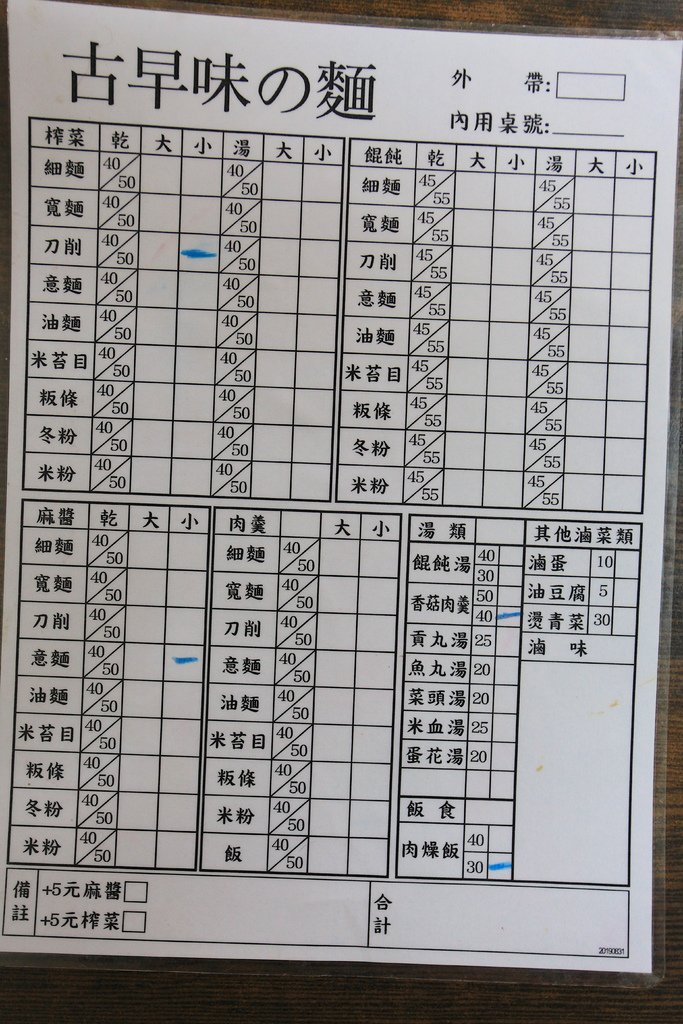 古早味の麵
外帶:
內用桌號:
榨菜 乾 大 小 湯 大 小
細麵 40/50 40/50
寬麵 40/50 40/50
刀削 40/50 40/50
意麵 40/50 40/50
油麵 40/50 40/50
米苔目 40/50 40/50
粄條 40/50 40/50
冬粉 40/50 40/50
米粉 40/50 40/50
餛飩 乾 大 小 湯 大 小
細麵 45/55 45/55
寬麵 45/55 45/55
刀削 45/55 45/55
意麵 45/55 45/55
油麵 45/55 45/55
米苔目 45/55 45/55
粄條 45/55 45/55
冬粉 45/55 45/55
米粉 45/55 45/55
麻醬 乾 大 小
細麵 40/50
寬麵 40/50
刀削 40/50
意麵 40/50
油麵 40/50
米苔目 40/50
粄條 40/50
冬粉 40/50
米粉 40/50
肉羹 大 小
細麵 40/50
寬麵 40/50
刀削 40/50
意麵 40/50
油麵 40/50
米苔目 40/50
粄條 40/50
米粉 40/50
飯 40/50
湯類
餛飩湯 40 30
香菇肉羹 50 40
貢丸湯 25
魚丸湯 20
菜頭湯 20
米血湯 25
蛋花湯 20
飯食
肉燥飯 40 30
其他滷菜類
滷蛋 10
油豆腐 5
燙青菜 30
滷味
備註
+5元麻醬
+5元榨菜
合計
20190831